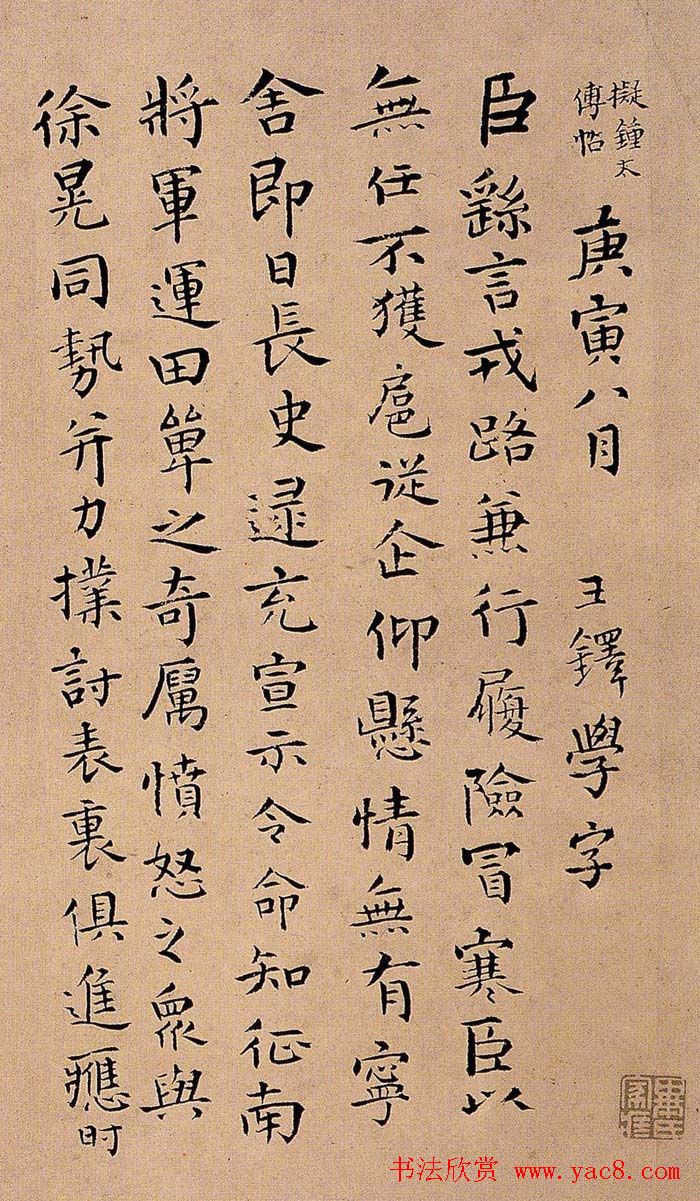 擬鍾太
傅帖
庚寅八月 王鐸學字
臣繇言戎路兼行履險冒寒臣以
無任不獲扈從企仰懸情無有寧
舍即日長史逯充宣示令命知征南
將軍運田單之奇厲憤怒之眾與
徐晃同勢并力撲討表裏俱進應時
书法欣赏 www.yac8.com